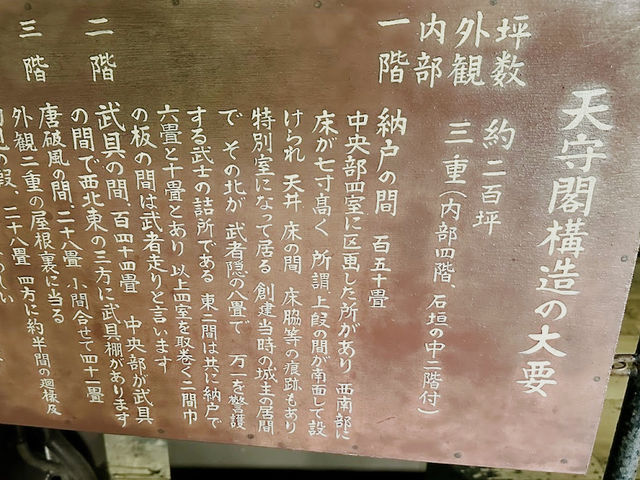 天守閣構造の大要
坪数 約二百坪
外観 三重(内部四階、石垣の中二階付)
内部
一階 納戸の間 百五十畳
中央部四室に区画した所があり 西南部に
床が七寸高く 所謂上段の間が南面して設
けられ 天井 床の間 床脇等の痕跡もあり
特別室になって居る 創建当時の城主の居間
で その北が 武者隠の八畳で 万一を警護
する武士の詰所である 東二間は共に納戸で
六畳と十畳とあり 以上四室を取巻く二間巾
の板の間は武者走りと言います
二階 武具の間 百四十四畳 中央部が武具
の間で西北東の三方に武具棚があります
唐破風の間、二十八畳 小間合せて四十一畳
三階 外観二重の屋根裏に当る
二十八畳 四方に約半間の廻椽及